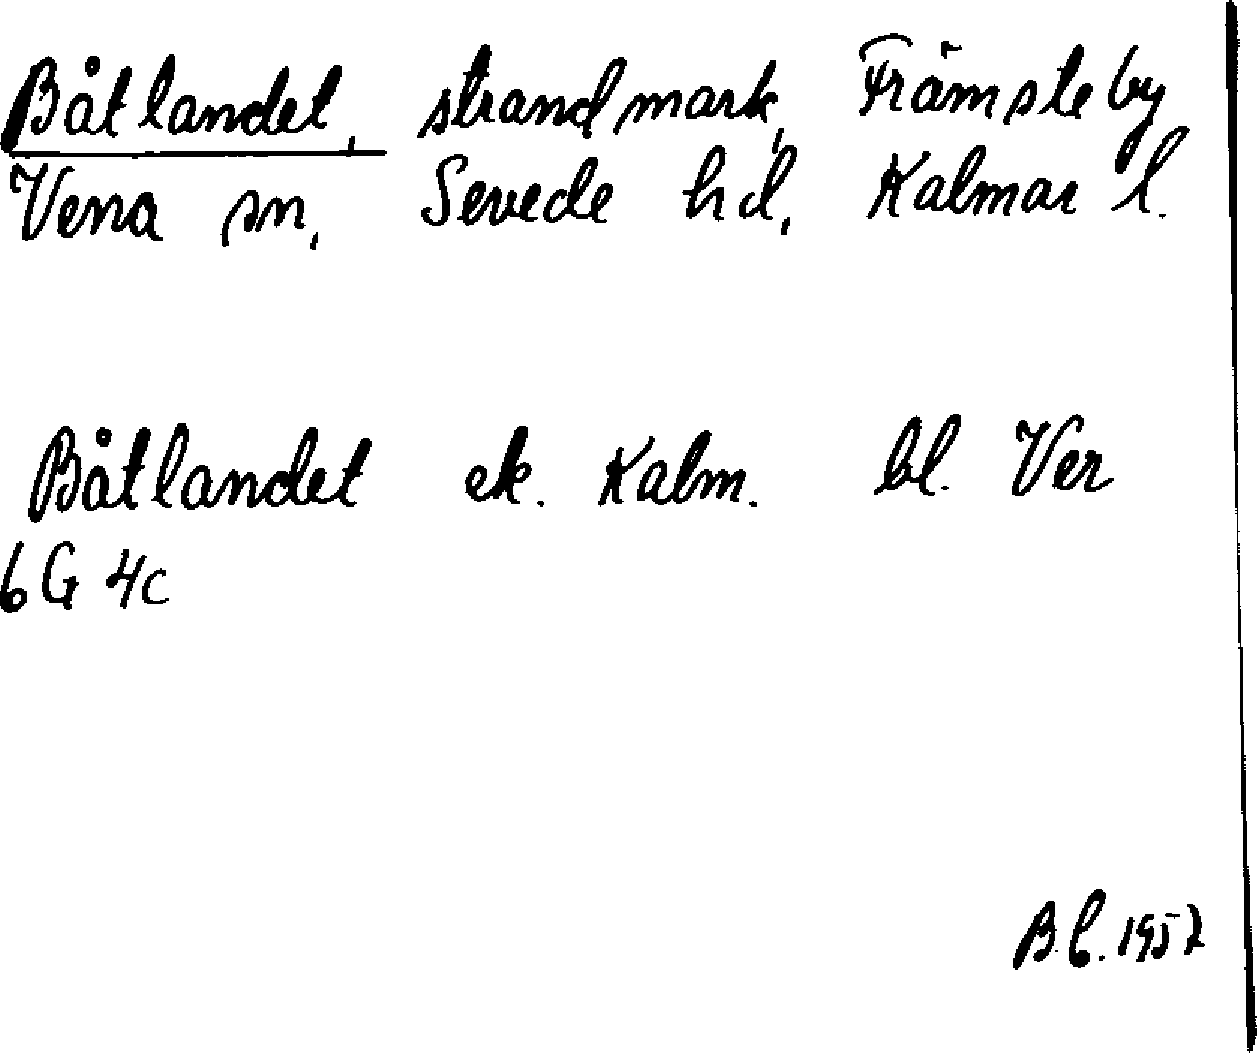 Båtlandet, strandmark, Främsteby
Vena sn, Sevede hd, Kalmar l.
Båtlandet ek. Kalm. bl. Ver
6G 4c
B.L. 1957